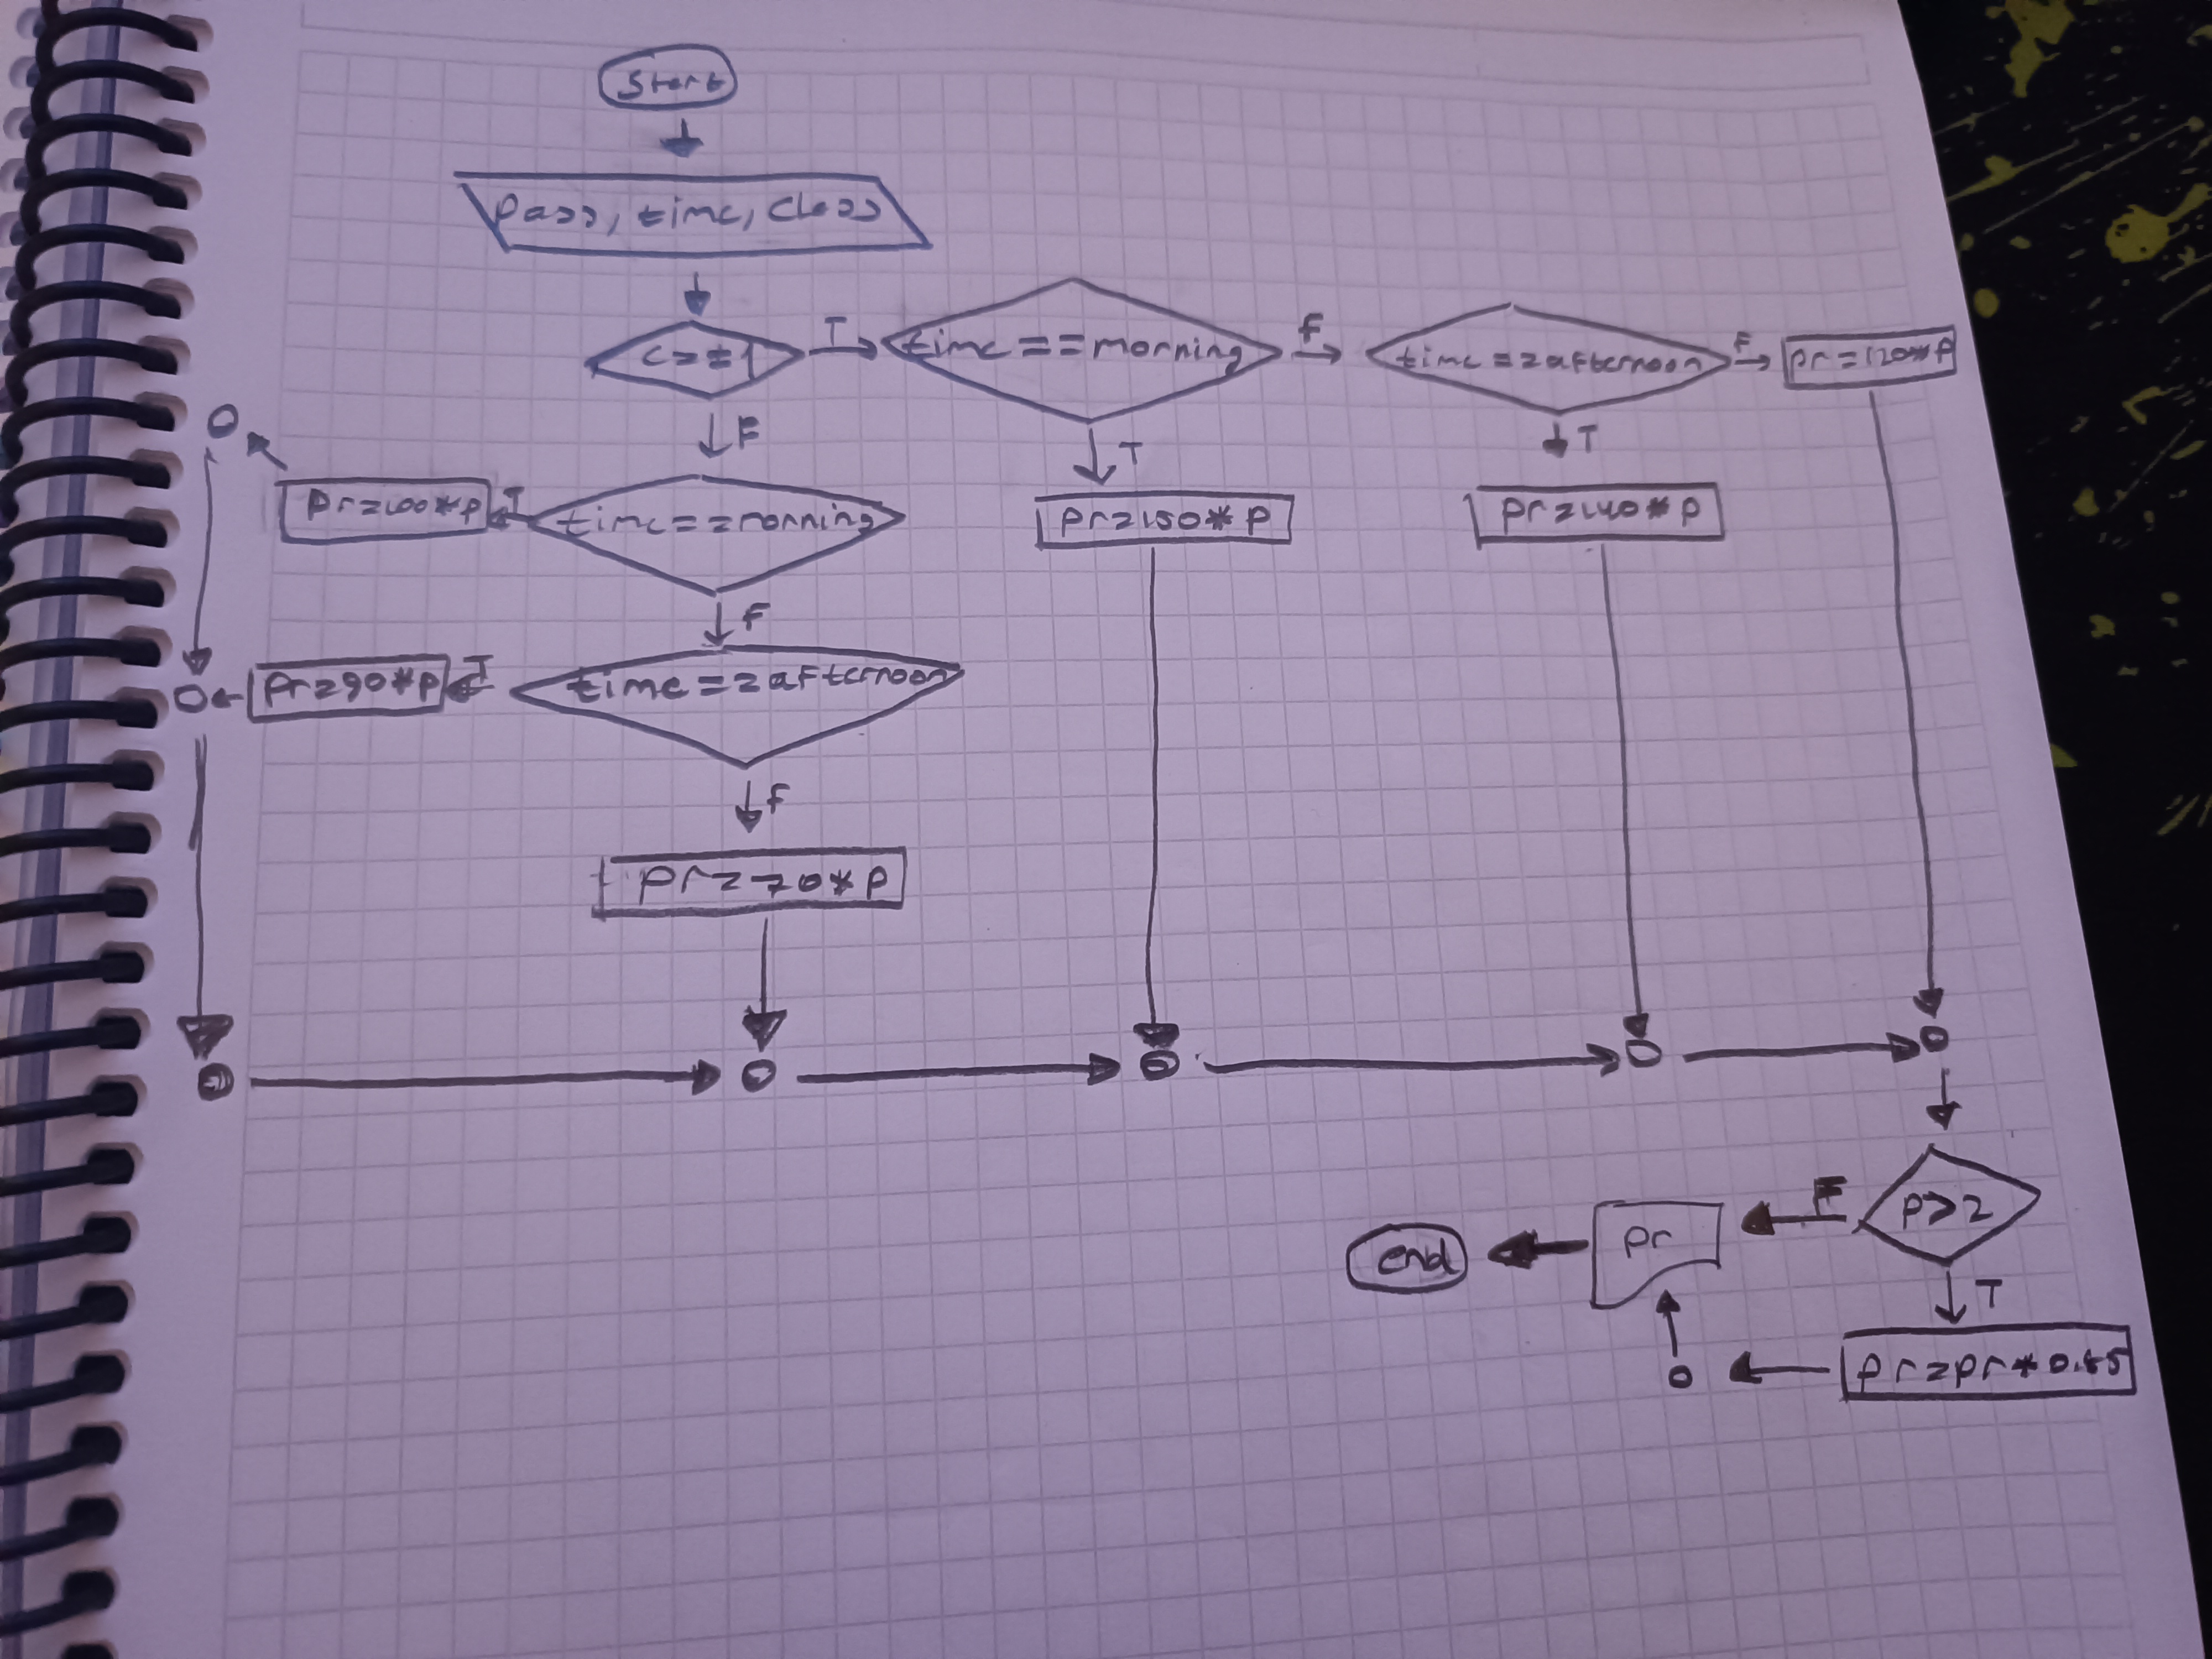 Start
pass, time, class
c==1
T
time==morning
F
time==afternoon
F
pr=120*p
F
T
T
pr=100*p
T
time==morning
pr=150*p
pr=140*p
F
pr=90*p
T
time==afternoon
F
pr=70*p
end
pr
F
p>2
T
pr=pr*0.85